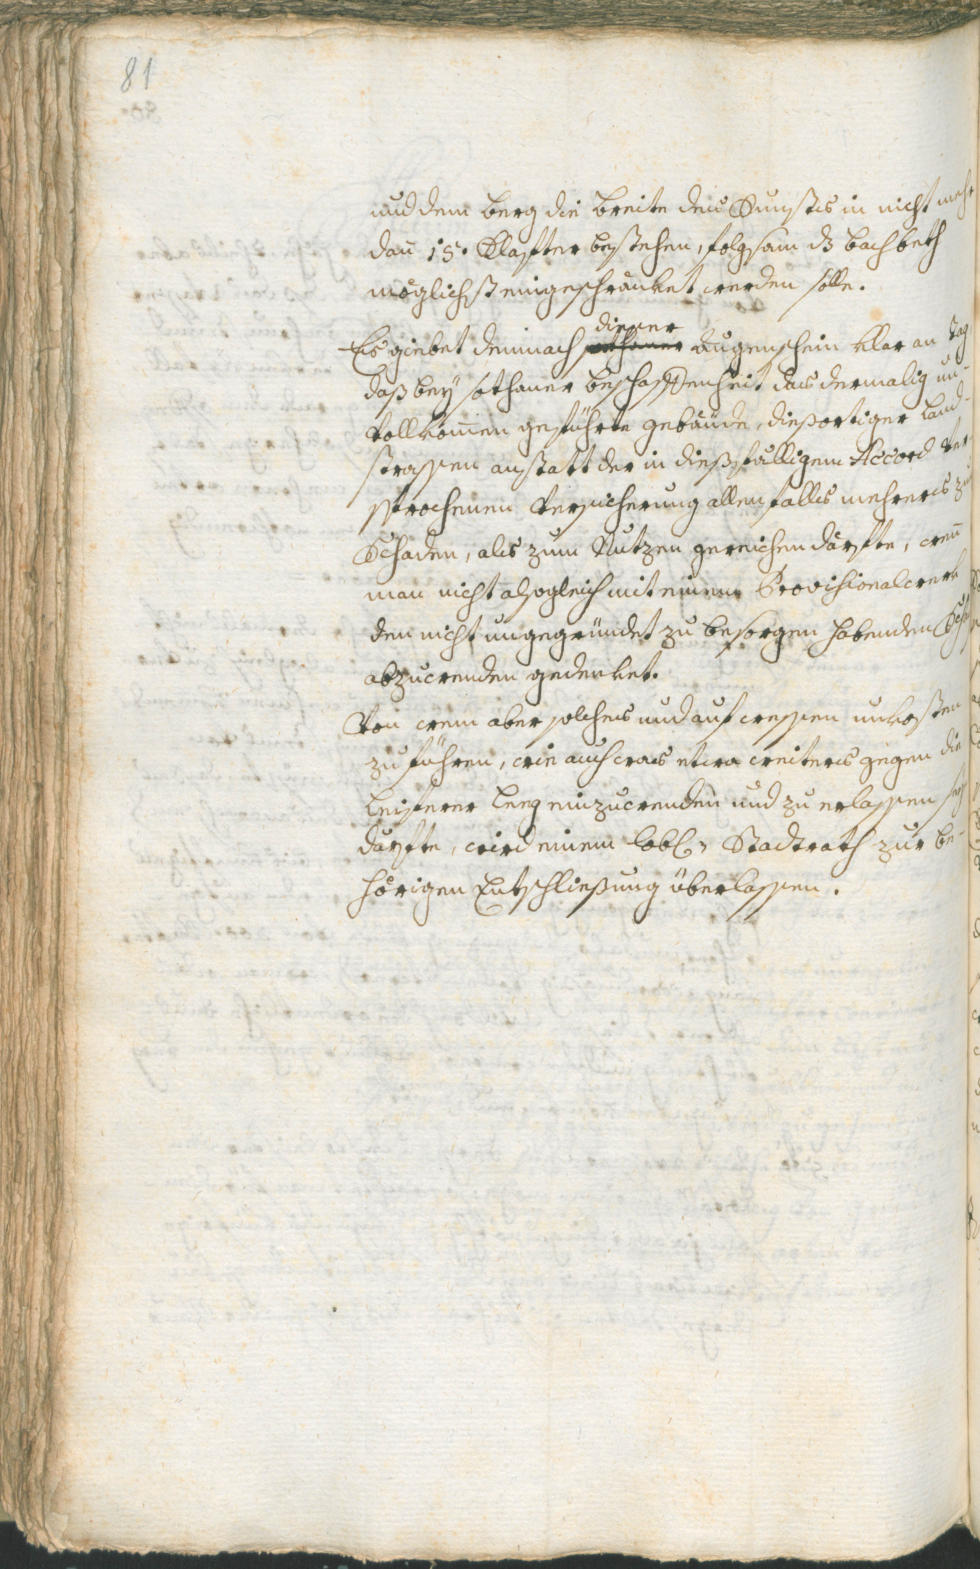 81
und dem berg die breite des Runstes in nicht mehr
dan̄ 15. Klafter bestehen, folgsam dz bachbeth
möglichst eingeschränket werden solle.
Es giebet demnach sothaner dieser Augenschein klar an Tag
daß bey sothaner beschaffenheit das dermalig un-
vollkom̄en geführte gebäude, diesortiger Land-
strassen anstatt der in diesfälligem Accord ver-
sprochenen Versicherung allenfalls mehreres zum
Schaden, als zum Nutzen gereichen därffte, wen̄
man nicht alsogleich mit einem Provisionalwerk
den nicht ungegründet zu besorgen habenden Scha
abzuwenden gedenket.
Von wem aber solches und auf wessen unkosten
zuführen, wie auch was etwa weiters gegen die
Leiferer Leeg einzuwenden und zu erlassen seyn
därffte, wird einem lobl: Stadtrath zur be-
hörigen Entschließung überlassen.